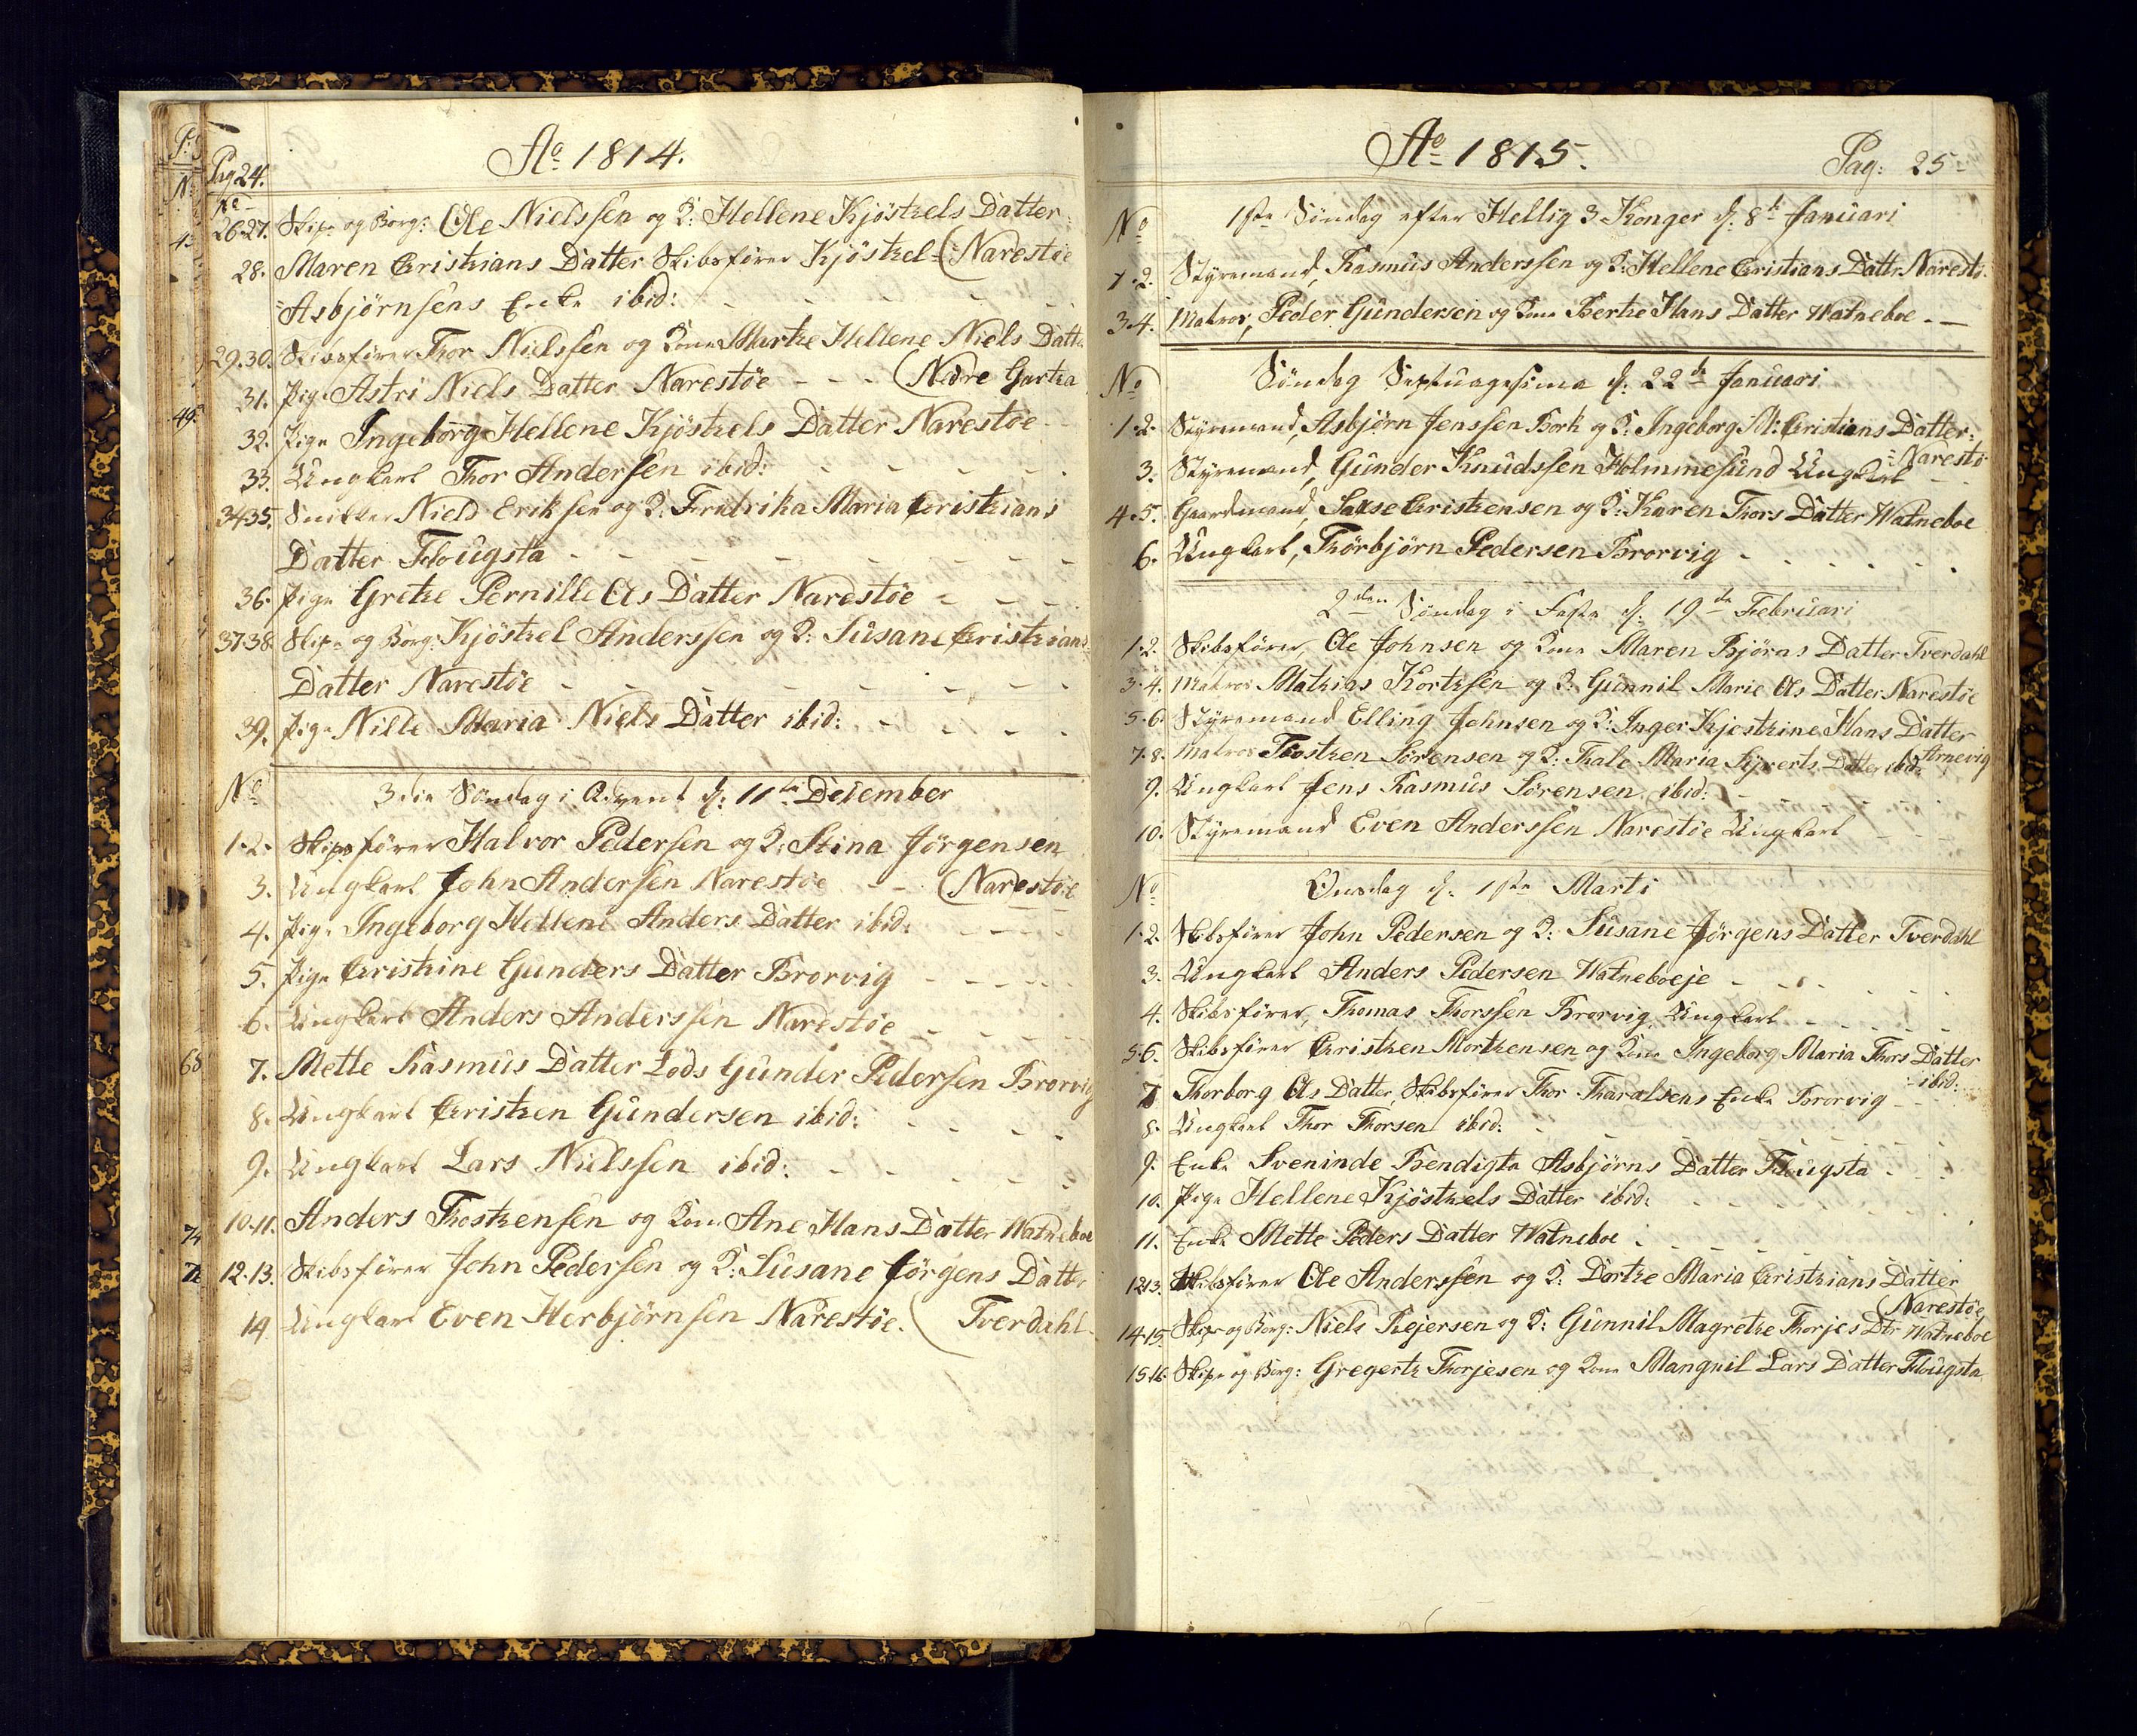 Pag 24.
Ao 1814.
No
26.27. Skip. og Borg: Ole Nielssen og K: Hellene Kjöstels Datter
28. Maren Christians Datter Skibsförer Kjöstel= (Narestöe
=Asbjörnsens Enke ibid:
29.30. Skibsförer Thor Nielssen og Kone Marthe Hellene Niels Datter
31. Pige Astri Niels Datter Narestöe - - - (Nedre Gartha
32. Pige Ingeborg Hellene Kjöstels Datter Narestöe
33. Ungkarl Thor Andersen ibid:
34.35. Snikker Niels Eriksen og K: Fredrika Maria Christians
Datter Flougsta
36. Pige Grethe Pernille Ols Datter Narestöe
37.38. Skip. og Borg: Kjöstel Anderssen og K: Susane Christians
Datter Narestöe
39. Pige Nille Maria Niels Datter ibid:
No 3die Söndag i Advent d: 11te December
1.2. Skipsförer Halvor Pedersen og K: Stina Jörgensen
3. Ungkarl John Andersen Narestöe - - (Narestöe
4. Pige Ingeborg Hellene Anders Datter ibid:
5. Pige Christine Gunders Datter Brorvig
6. Ungkarl Anders Anderssen Narestöe
7. Mette Rasmus Datter Lods Gunder Pedersen Brorvig
8. Ungkarl Christen Gundersen ibid:
9. Ungkarl Lars Nielssen ibid:
10.11. Anders Thostensen og Kone Ane Hans Datter Watneboe
12.13. Skibsförer John Pedersen og K: Susane Jörgens Datter
14 Ungkarl Even Herbjörnsen Narestöe. (Tverdahl
Ao 1815.
Pag: 25
No 1ste Söndag efter Hellig 3 Konger d: 8de Januari
1.2. Styremand, Rasmus Anderssen og K: Hellene Christians Datt. Narestö.
3.4. Matros, Peder Gundersen og Kone Berthe Hans Datter Watneboe
No Söndag Septuagesima d: 22de Januari
1.2. Styremand, Asbjörn Jenssen Bork og K: Ingeborg M: Christians Datter=
=Narestö
3. Styremand, Gunder Knudssen Holmmesund Ungkarl
4.5. Gaardmand, Saxse Christensen og K: Karen Thors Datter Watneboe
6. Ungkarl, Thorbjörn Pedersen Brorvig
2den Söndag i Faste d: 19de Februari
1.2. Skibsförer, Ole Johnsen og Kone Maren Björns Datter Tverdahl
3.4. Matros Mathias Kortsen og K: Gunnil Marie Ols Datter Narestöe
5.6. Styremand Elling Johnsen og K: Inger Kjestine Hans Datter
Arnevig
7.8. Matros Thosten Sörensen og K: Thale Maria Syverts Datter ibid:
9. Ungkarl Jens Rasmus Sörensen ibid:
10. Styremand Even Anderssen Narestöe Ungkarl
No Onsdag d: 1ste Marti
1.2. Skibsförer John Pedersen og K: Susane Jörgens Datter Tverdahl
3. Ungkarl Anders Pedersen Watneboeje
4. Skibsförer, Thomas Thorssen Brorvig Ungkarl
5.6. Skibsförer Christen Mortensen og Kone Ingeborg Maria Thors Datter
=ibid:
7 Thorborg Ols Datter, Skibsförer Thor Tharalsens Enke Brorvig
8. Ungkarl Thor Thorsen ibid:
9. Enke Sveninde Bendigta Asbjörns Datter Flougsta
10. Pige Hellene Kjöstels Datter ibid:
11. Enke Mette Peders Datter Watneboe
12.13. Skibsförer Ole Anderssen og K: Dorthe Maria Christians Datter
(Narestöe
14.15. Skip. og Borg: Niels Rejersen og K: Gunnil Magrethe Thorjes Dtr Watneboe
15.16. Skip. og Borg: Gregerts Thorjesen og Kone Mangnil Lars Datter Flougsta